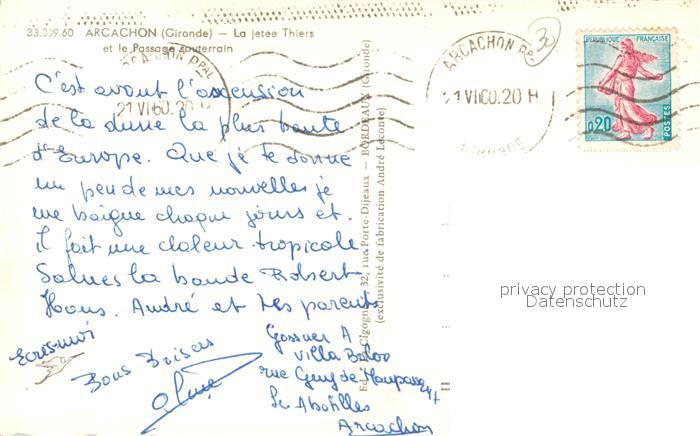 33.009.60 ARCACHON (Gironde) - La jetée Thiers
et le Passage souterrain
C'est avant l'ascension
de la dune la plus haute
d'Europe. Que je te donne
un peu de mes nouvelles je
me baigne chaque jours et.
Il fait une chaleur tropicale
Salues la bande Robert
Hans. André et tes parents
Ecris-moi
Bons Baisers
Gossner A
Villa
rue Guy de Maupassant
Les Abatilles
Arcachon
32, rue Porte-Dijeaux - BORDEAUX (Gironde)
(exclusivité de fabrication André Leconte)
ARCACHON PPAL
21 VII 60.20 H
30
ARCACHON PPAL
21 VII 60.20 H
GIRONDE
REPUBLIQUE FRANÇAISE
0,20
POSTES
privacy protection
Datenschutz